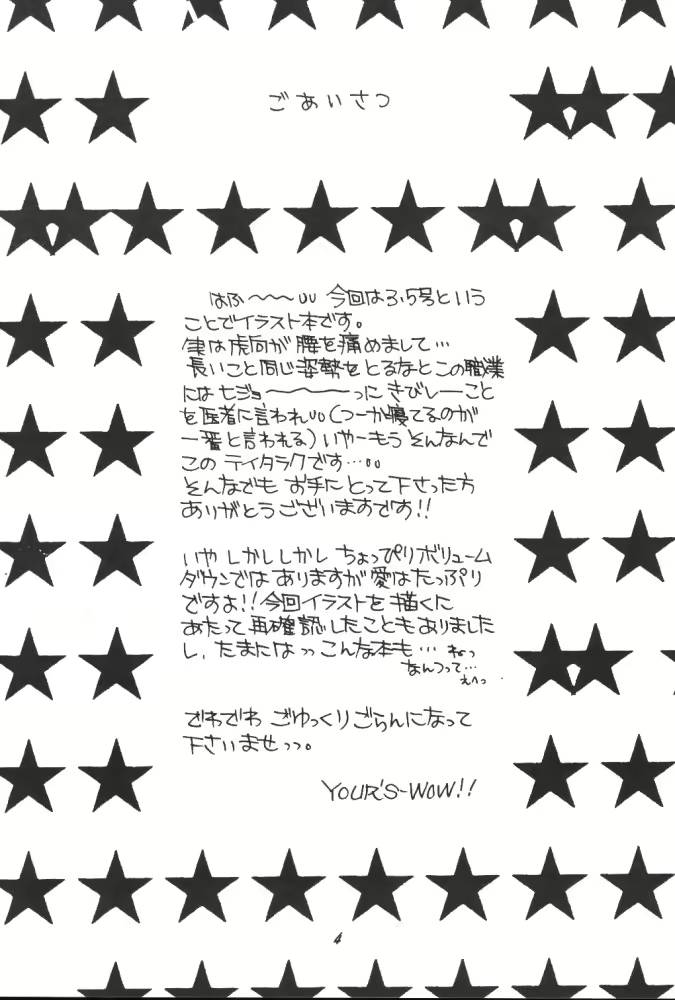 ごあいさつ
はふ〜〜〜υυ 今回は3.5号という
ことでイラスト本です。
実は虎向が腰を痛めまして…
長いこと同じ姿勢をとるなとこの職業
には七ジョ〜〜〜〜っにきびしーこと
を医者に言われυυ(つーか寝てるのが
一番と言われる)いやーもう そんなんで
この テイタラクです…υυ
そんなでも お手にとって下さった方
ありがとうございますです!!
いや しかししかし ちょっぴりボリューム
ダウンでは ありますが愛はたっぷり
ですよ!!今回イラストを 描くに
あたって 再確認したこともありました
し、たまにはっっこんな本も… ねっ
なんつって…
えへっ
でわでわ ごゆっくりごらんになって
下さいませっっ。
YOUR'S-WOW!!
4